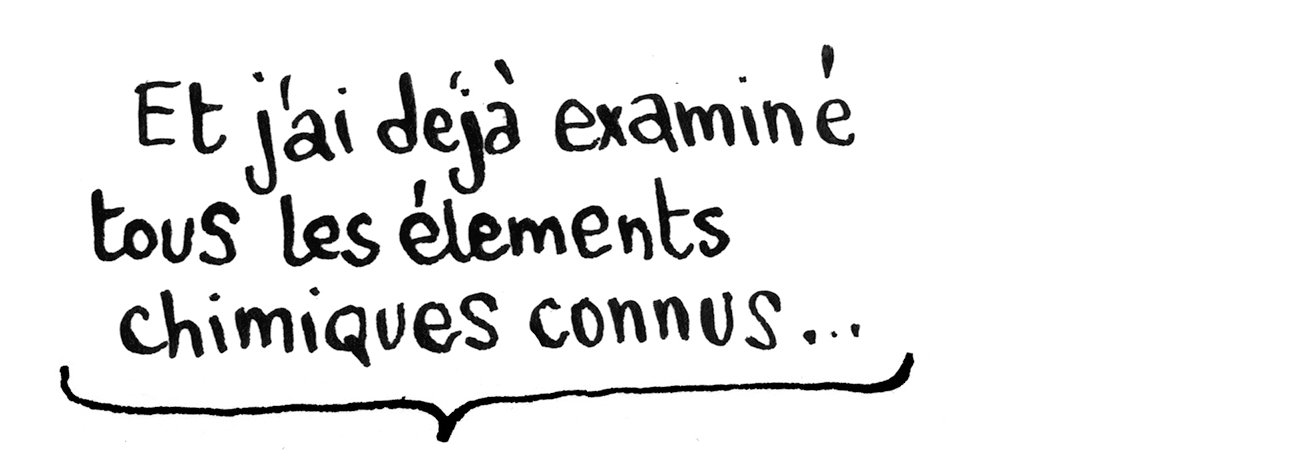 Et j'ai déjà examiné
tous les élements
chimiques connus...